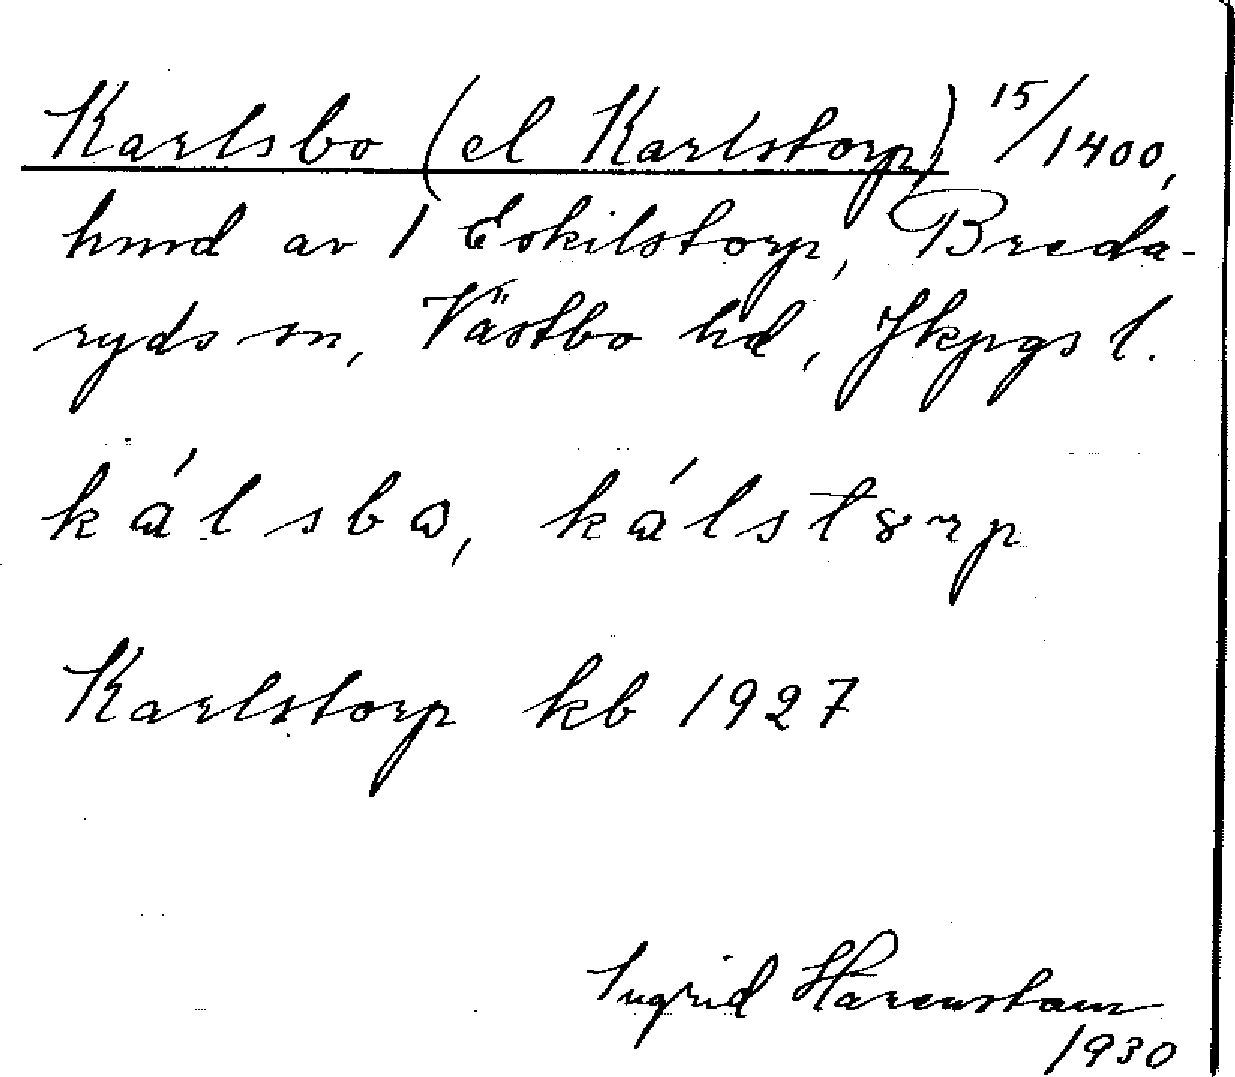 Karlsbo (el Karlstorp) 15/1400,
hmd av 1 Eskilstorp, Breda-
ryds sn, Västbo hd, Jkpgs l.
kɑ́lsbɷ, kɑ́lstɷrp
Karlstorp kb 1927
Ingrid Härenstam
1930